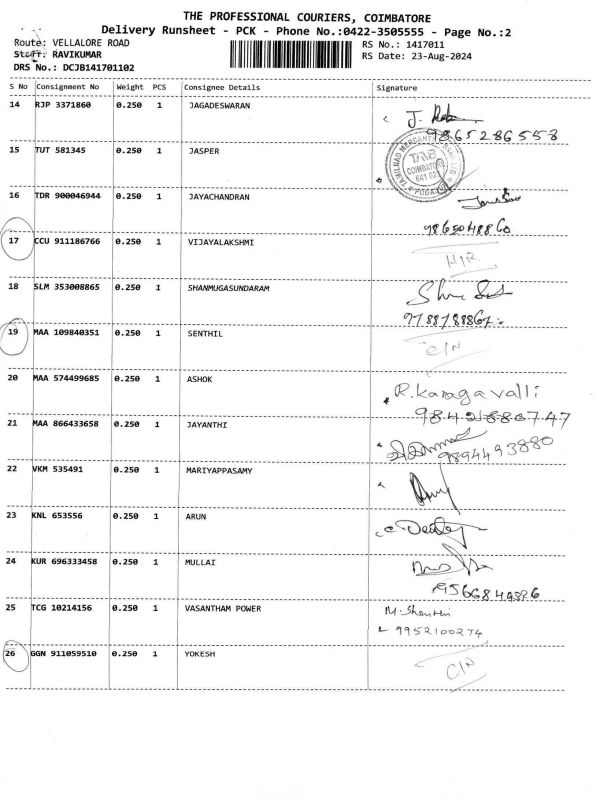 THE PROFESSIONAL COURIERS, COIMBATORE
Delivery Runsheet - PCK - Phone No.:0422-3505555 - Page No.:2
Route: VELLALORE ROAD
RS No.: 1417011
Staff: RAVIKUMAR
RS Date: 23-Aug-2024
DRS No.: DCJB141701102
S No Consignment No Weight PCS Consignee Details Signature
14 RJP 3371860 0.250 1 JAGADESWARAN
9865286558
15 TUT 581345 0.250 1 JASPER
TAMILNAD MERCANTILE BANK LTD
TMB
COIMBATORE
16 TDR 900046944 0.250 1 JAYACHANDRAN
17 CCU 911186766 0.250 1 VIJAYALAKSHMI
18 SLM 353008865 0.250 1 SHANMUGASUNDARAM
19 MAA 109840351 0.250 1 SENTHIL
C/N
20 MAA 574499685 0.250 1 ASHOK
R.Karagavalli
21 MAA 866433658 0.250 1 JAYANTHI
9894493880
22 VKM 535491 0.250 1 MARIYAPPASAMY
23 KNL 653556 0.250 1 ARUN
24 KUR 696333458 0.250 1 MULLAI
25 TCG 10214156 0.250 1 VASANTHAM POWER
9952100274
26 GGN 911059510 0.250 1 YOKESH
C/N